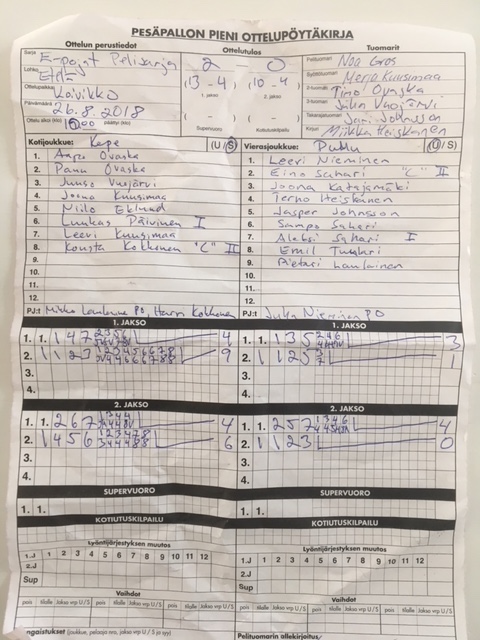 PESÄPALLON PIENI OTTELUPÖYTÄKIRJA
Ottelun perustiedot Ottelutulos Tuomarit
Sarja E-pojat Pelisarja 2 - 0 Pelituomari Noa Gros
Lohko Etelä (13 - 4) (10 - 4) Syöttötuomari Merja Kuusimaa
Ottelupaikka Koivikko 1. jakso 2. jakso 2-tuomari Timo Ovaska
Päivämäärä 26.8.2018 ( - ) ( - ) 3-tuomari Juha Vuojärvi
Takarajatuomari Jari Johnsson
Ottelu alkoi (klo) päättyi (klo) Supervuoro Kotiutuskilpailu Kirjuri Miikka Heiskanen
Kotijoukkue: Kape (U/S) Vierasjoukkue: PuMu (U/S)
1. Aapo Ovaska 1. Leevi Nieminen
2. Panu Ovaska 2. Eino Sahari "C" II
3. Juuso Vuojärvi 3. Joona Katajamäki
4. Joona Kuusimaa 4. Terho Heiskanen
5. Miilo Eklund 5. Jasper Johnsson
6. Luukas Päivinen I 6. Sampo Sahari
7. Leevi Kuusimaa 7. Aleksi Sahari I
8. Kousta Kokkonen "C" II 8. Emil
9. 9. Pietari Laulainen
10. 10.
11. 11.
12. 12.
PJ:t Mikko PO, Harri Kokkonen PJ:t Juha Nieminen PO
1. JAKSO 1. JAKSO
1. 1. 1 4 7 4 1. 1. 1 3 5 3
2. 1 1 2 3 9 2. 1 1 2 5 1
3. 3.
4. 4.
2. JAKSO 2. JAKSO
1. 1. 2 6 7 4 1. 1. 2 5 7 4
2. 1 4 5 6 6 2. 1 1 2 3 0
3. 3.
4. 4.
SUPERVUORO SUPERVUORO
1. 1. 1. 1.
KOTIUTUSKILPAILU KOTIUTUSKILPAILU
Lyöntijärjestyksen muutos Lyöntijärjestyksen muutos
1.J 1 2 3 4 5 6 7 8 9 10 11 12 1.J 1 2 3 4 5 6 7 8 9 10 11 12
2.J 2.J
Sup Sup
Vaihdot Vaihdot
pois tilalle Jakso vrp U/S pois tilalle Jakso vrp U/S pois tilalle Jakso vrp U/S pois tilalle Jakso vrp U/S
(joukkue, pelaaja nro, jakso vrp U/S ja syy) Pelituomarin allekirjoitus/